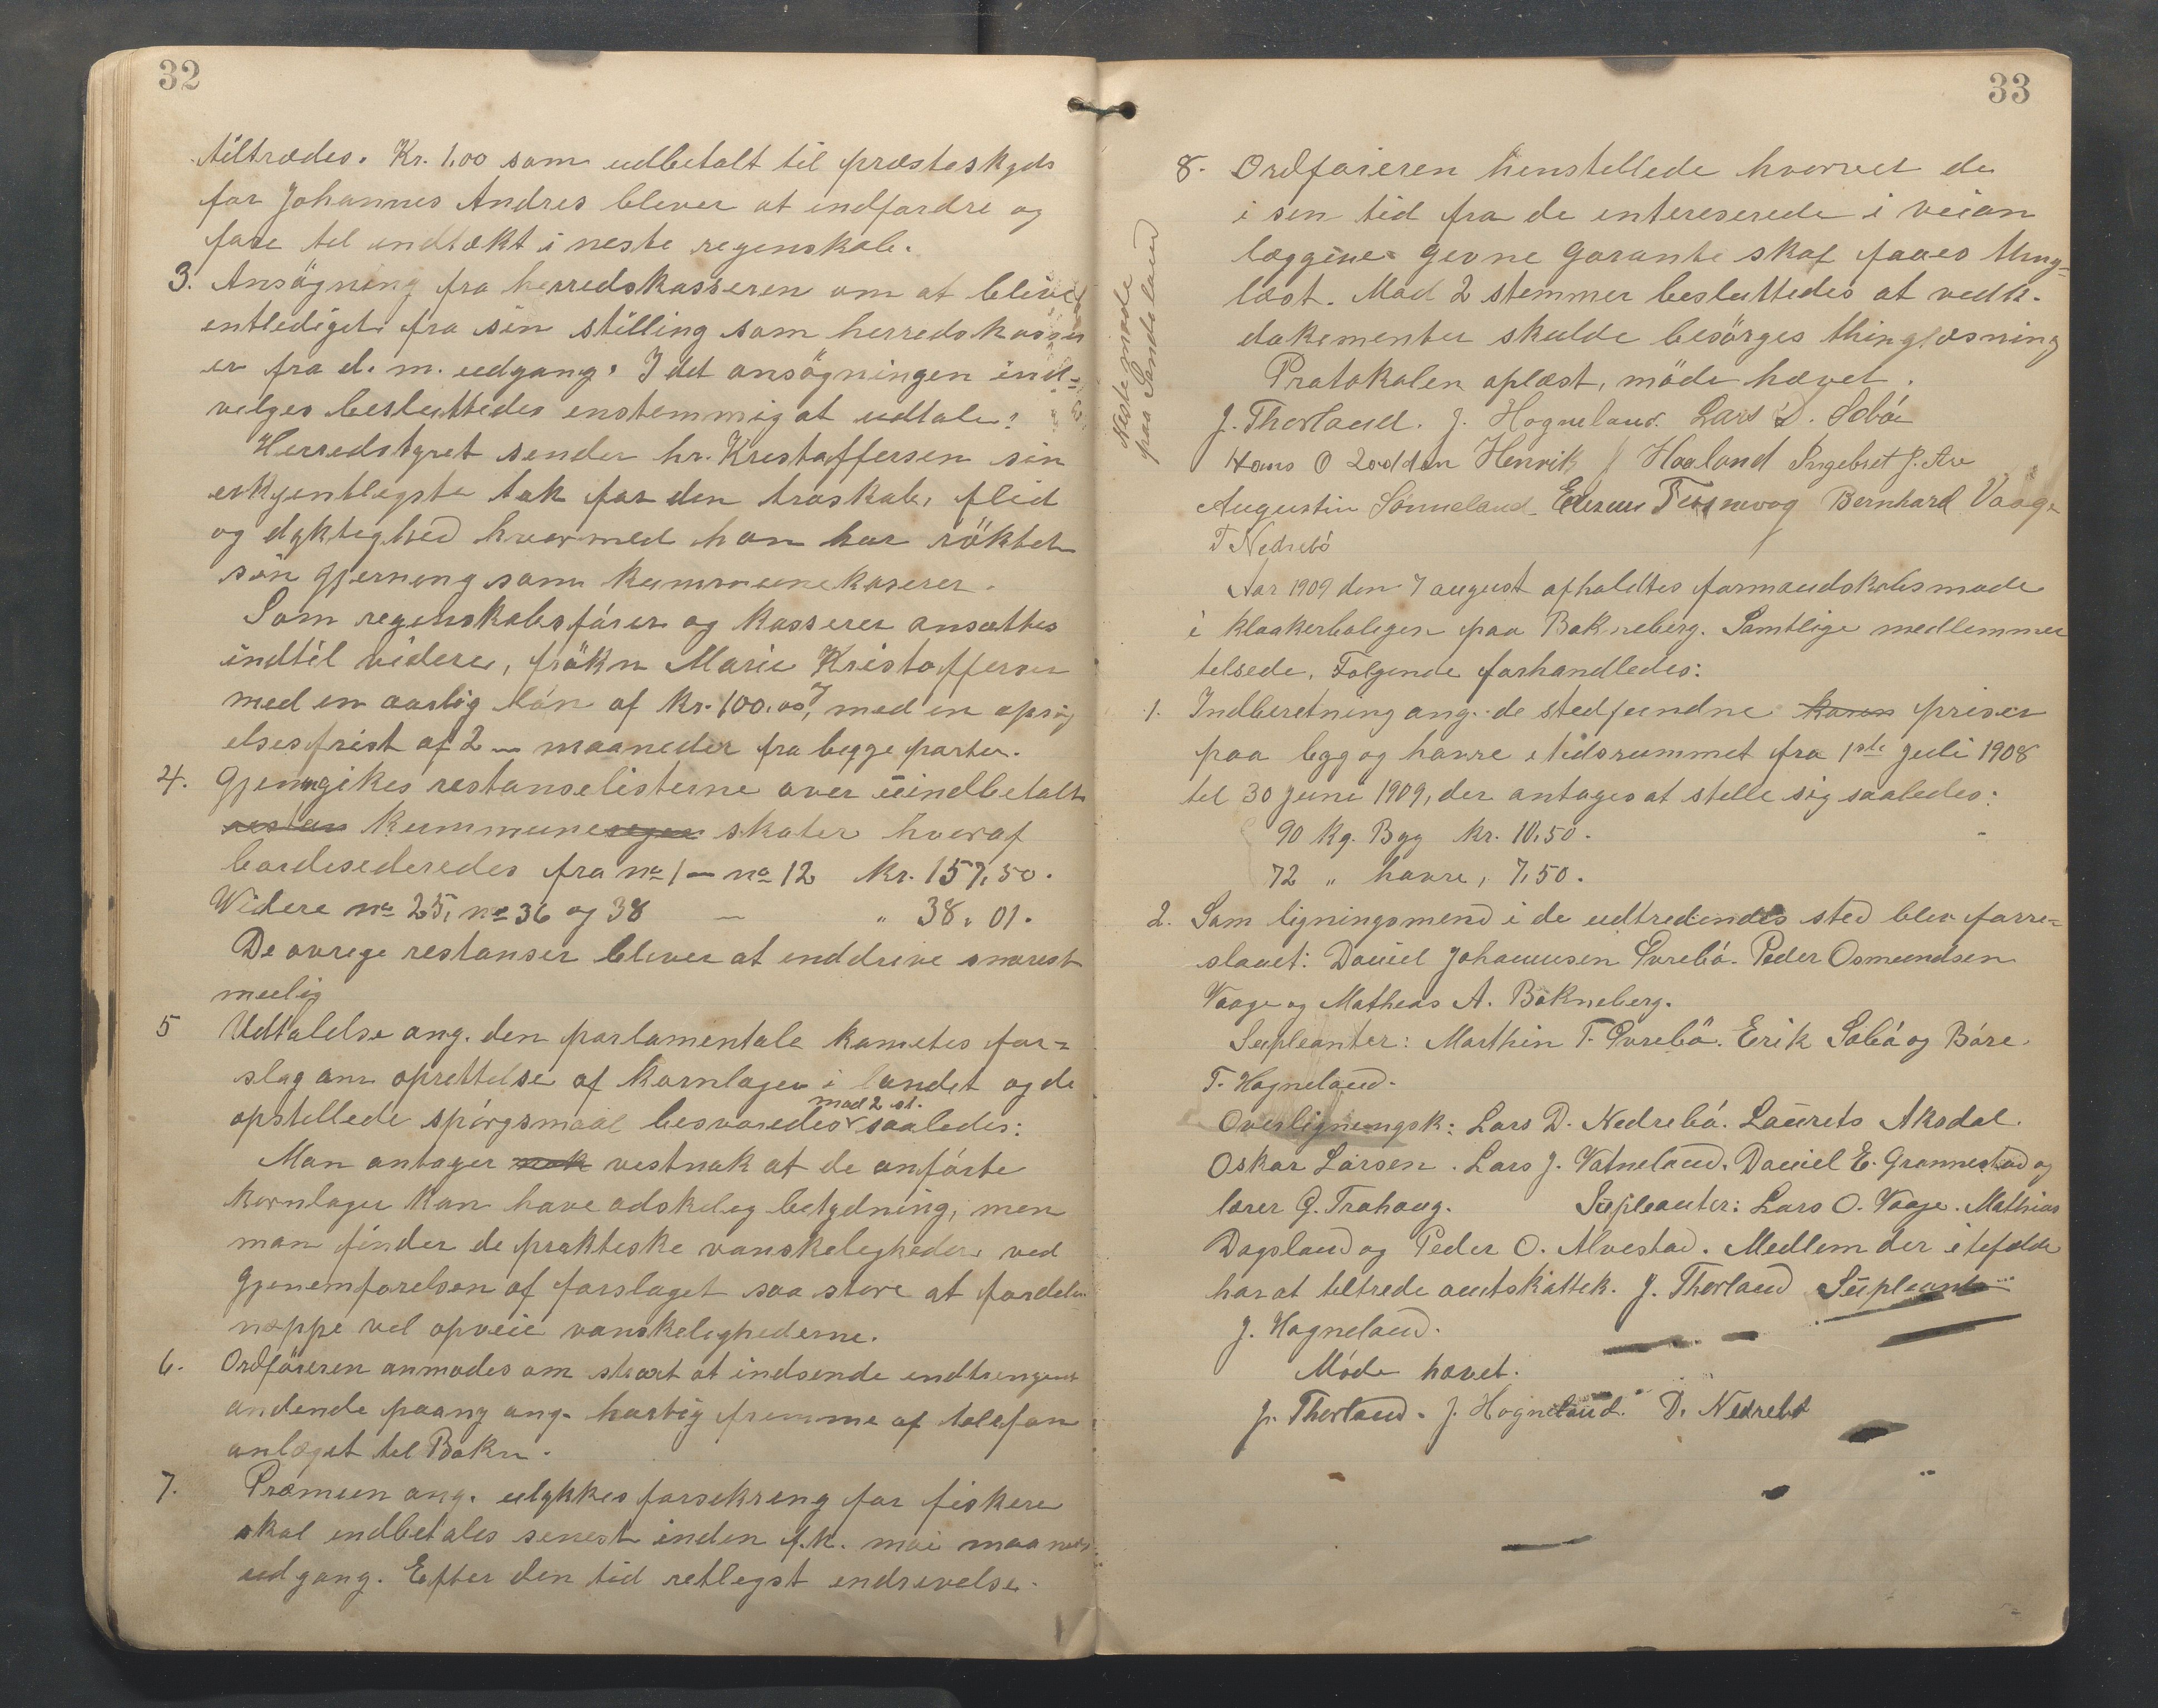 32
tiltrædes. Kr. 1,00 som udbetalt til præsteskyds
for Johannes Andres blever at indfordre og
føre til indtækt i neste regenskab.
3. Ansögning fra herredskasseren om at blive
entlediget fra sin stilling som herredskasser
er fra d. m. udgang. I det ansögningen ind=
velges besluttedes enstemmig at udtale:
Herredstyret sender hr. Krestoffersen sin
erkjentlegste tak for den troskab, flid
og dyktighed hvormed han har röktet
sin gjerneng som kummunekaserer.
Som regenskabsfører og kasserer ansættes
indtil videre, frökn Marie Kristoffersen
med en aarlig lön af kr. 100.00, med en opsig
elsesfrist af 2 - maaneder fra begge parter.
4. Gjennemgikes restanselisterne over uindbetalte
kummune skater hvoraf
bordesederedes fra no 1 - no 12 Kr. 157,50.
Widere no 25, no 36 og 38 — " 38,01.
De övrege restanser blever at inddrive snarest
mulig
5 Udtalelse ang. den parlamentale kometes for=
slag om oprettelse af kornlager i landet og de
med 2 st.
opstellede spörgsmaal besvaredes saaledes:
Man antager vestnok at de anförte
kornlager kan have adskeleg betydning, men
man finder de prakteske vanskelegheder ved
gjenemförelsen af forslaget saa store at fordelen
næppe vel opveie vanskeleghederne.
6. Ordföreren anmodes om straxt at indsende indtrengende
andende paang ang. hurtig fremme af telefon
anlæget til Bokn.
7. Præmien ang. ulykkesforsekreng for fiskere
skal indbetales senest inden f.k. mai maaneds
udgang. Efter den tid retlegst endrevelse.
Neste møde
paa Sandeland
33
8. Ordføieren henstellede hvorvet de
i sen tid fra de intereserede i veian
læggene givne garante skal faaes thing=
læst. Mod 2 stemmer besluttedes at vedk.
dokumenter skulde besörges thinglæsning
Protokolen oplæst, möde hævet.
J. Thorland. J. Hogneland. Lars D. Sobö
Hans O Lodden Henrik J Haaland Ingebret J. Are
Augustin Sönneland. Bernhard Vaage
T Nedrebö
Aar 1909 den 7 august afholdtes formandskabsmøde
i klokkerboligen paa Bokneberg. Samtlige medlemmer
telsede. Følgende forhandledes:
1. Indberetning ang. de stedfundne priser
paa bygg og havre i tidsrummet fra 1ste juli 1908
til 30 juni 1909, der antages at stelle sig saaledes:
90 kg. Byg kr. 10,50.
72 " havre, 7,50.
2. Som ligningsmend i de udtredendes sted blev forre=
slaaet: Daniel Johannesen Övrebö. Peder Osmundsen
Vaage og Mathias A. Bokneberg.
Supleanter: Marthin T. Övrebö. Erik Sabö og Böre
T. Hogneland.
Overligningsk: Lars D. Nedrebö. Laurets Aksdal.
Oskar Larsen. Lars J. Vatneland. Daniel E. Grønnestad og
lærer G. Trahaug. Supleanter: Lars O. Vaage. Mathias
Dagsland og Peder O. Alvestad. Medlem der i tefælde
har at tiltrede amtskattek. J. Thorland Supleant
J. Hogneland.
Möde hævet.
J. Thorland. J. Hogneland. D. Nedrebö